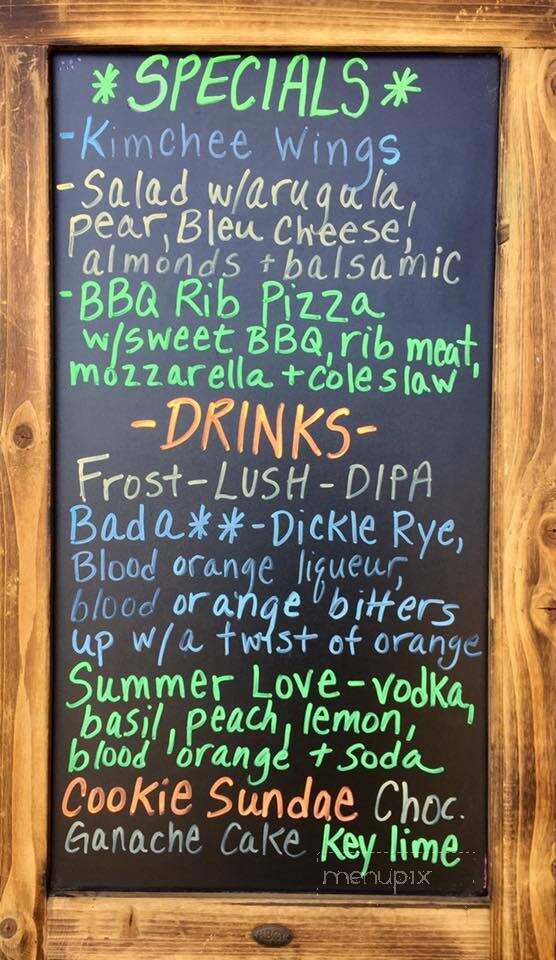 *SPECIALS*
-Kimchee Wings
-Salad w/arugula,
pear, Bleu cheese,
almonds + balsamic
-BBQ Rib Pizza
w/sweet BBQ, rib meat,
mozzarella + coleslaw
-DRINKS-
Frost-LUSH-DIPA
Bada**-Dickle Rye,
Blood orange liqueur,
blood orange bitters
up w/a twist of orange
Summer Love-vodka,
basil, peach, lemon,
blood orange + soda
Cookie Sundae Choc.
Ganache Cake Key lime
menupix